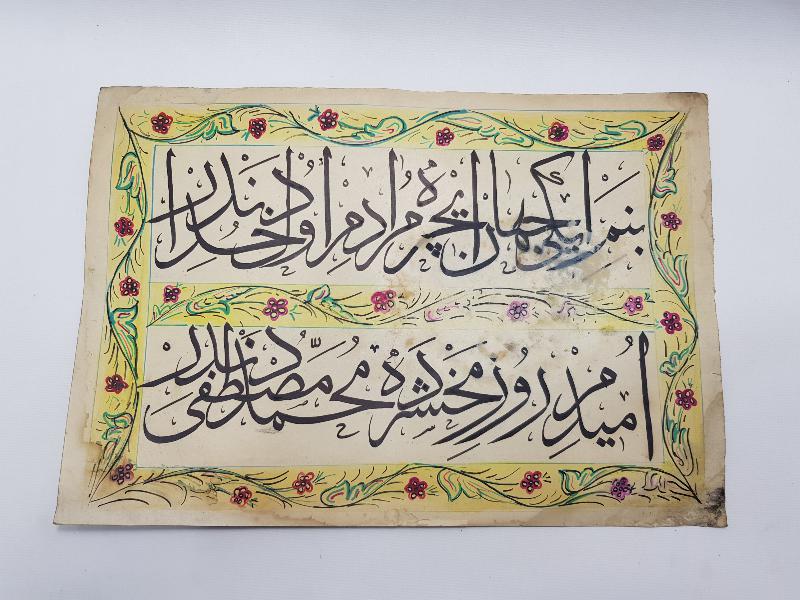 بنم ایکی جهان ایچره مرادم اول احد خدادندر
امیدم روز محشرده محمد مصطفی دندر